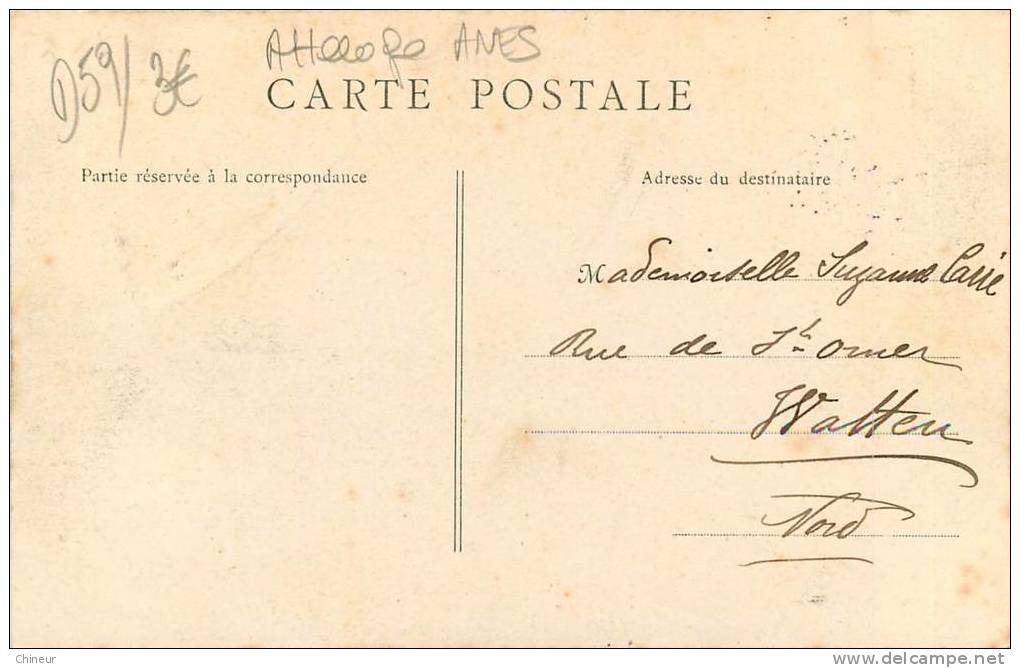 D59/ 3€ Attelage ANES
CARTE POSTALE
Partie réservée à la correspondance
Adresse du destinataire
Mademoiselle Suzanne Carré
Rue de St-Omer
Watten
Nord
Chineur
delcampe.net